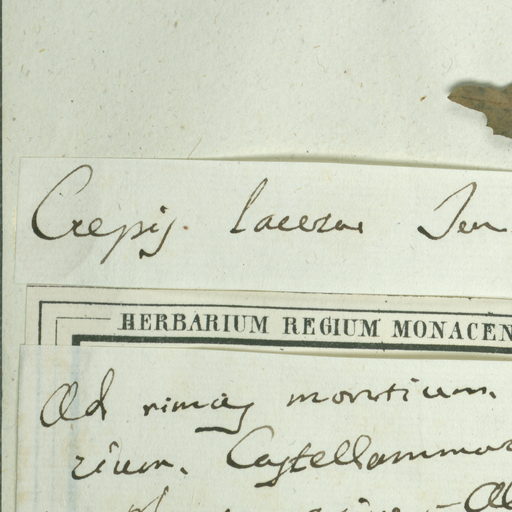 Crepis. lacera Ten
HERBARIUM REGIUM MONACEN
Ad rimas montium.
rium. Castellammar